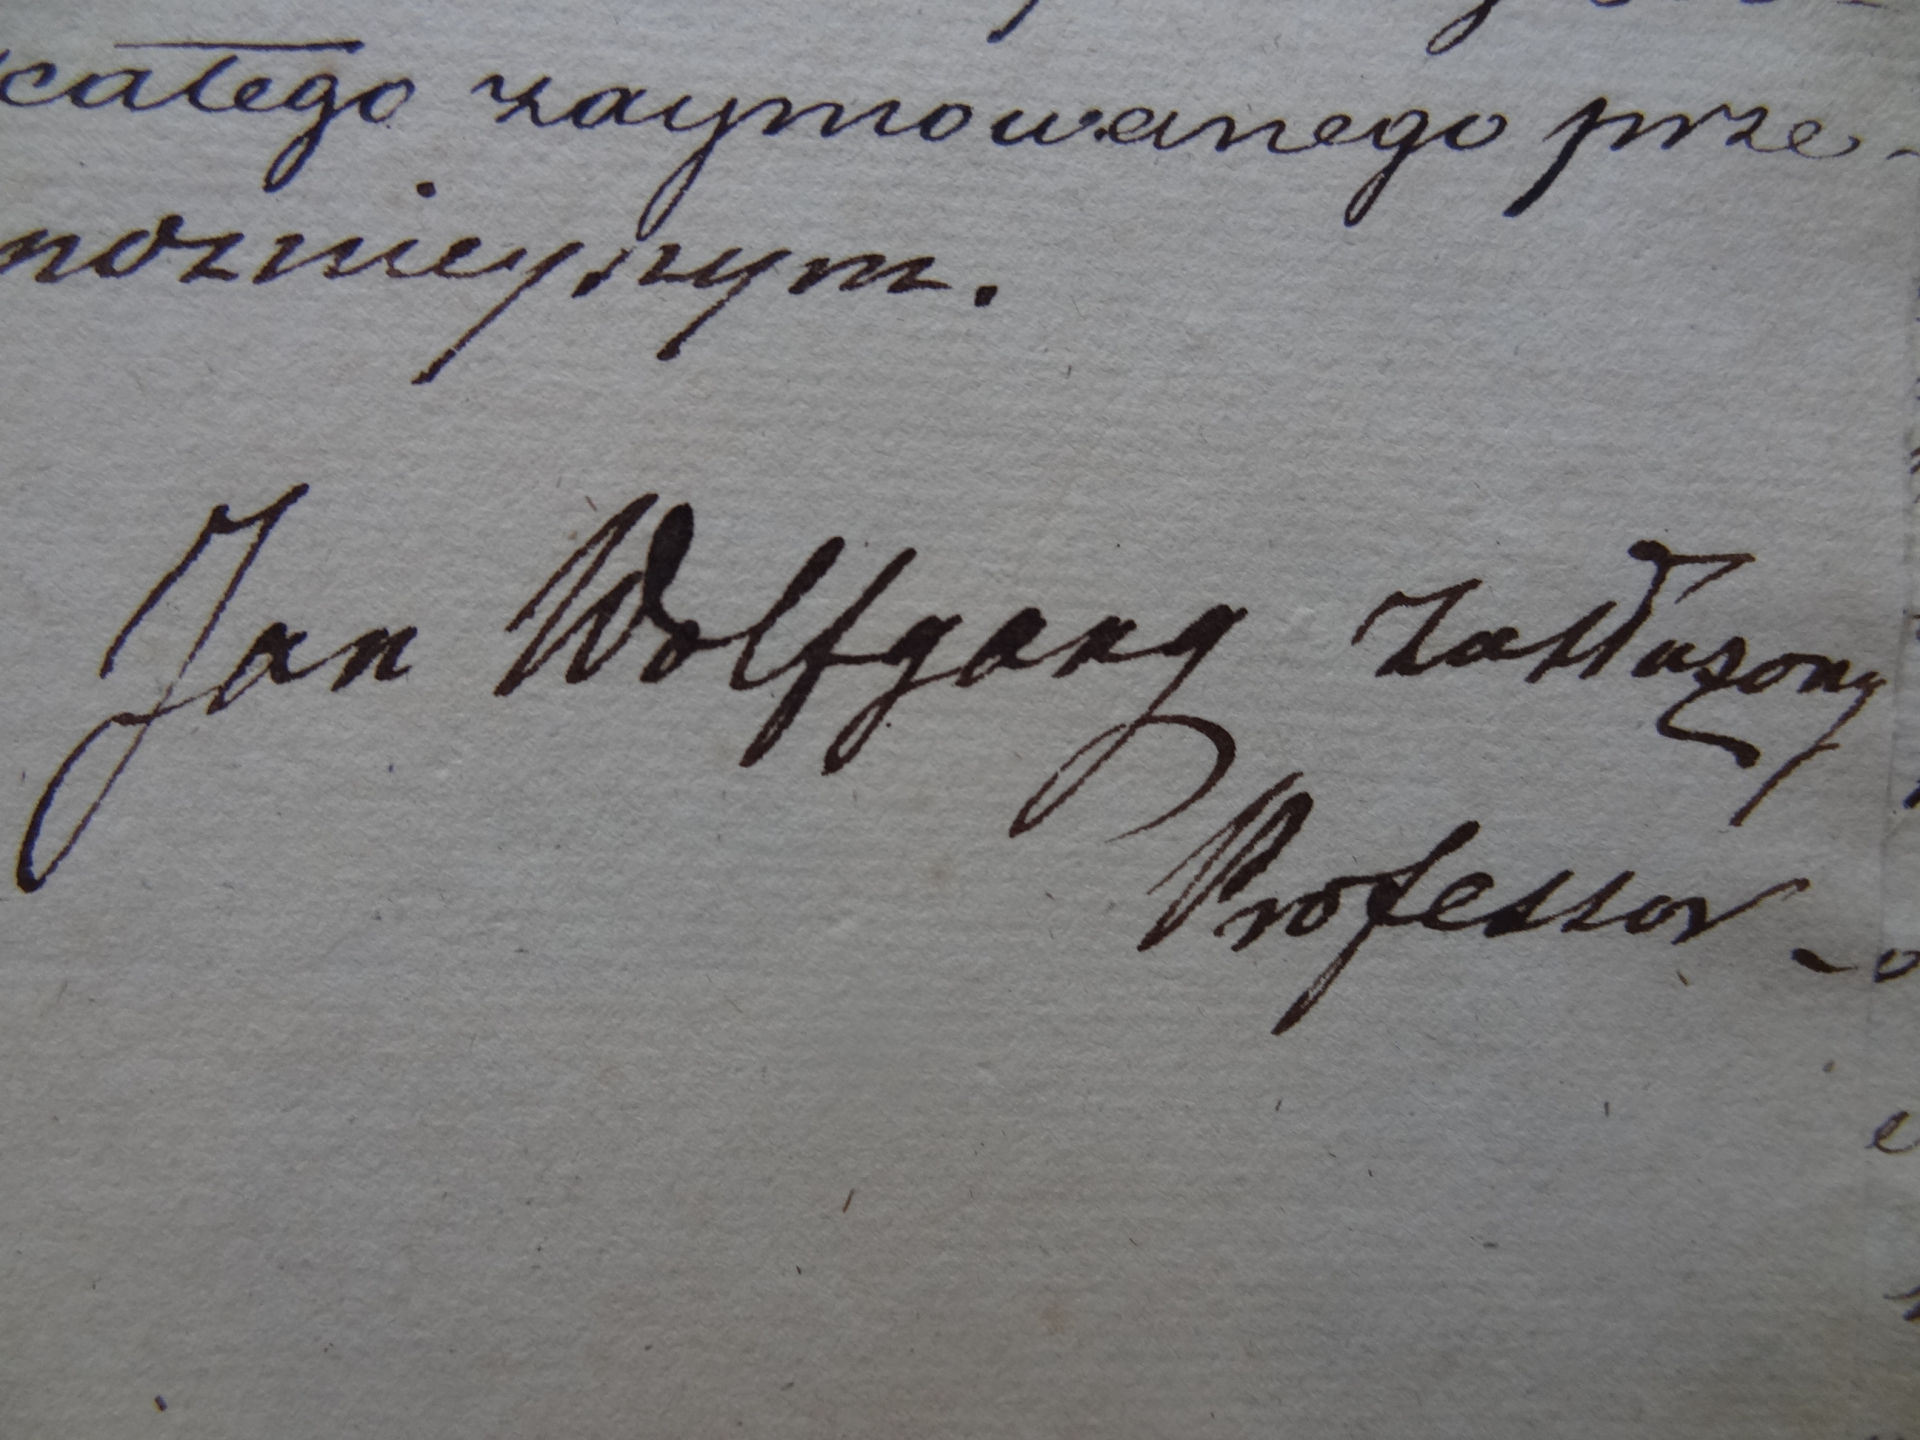 całego zaymowanego prze-
nosnieyszym.
Jan Wolfgang zasłużony
Professor